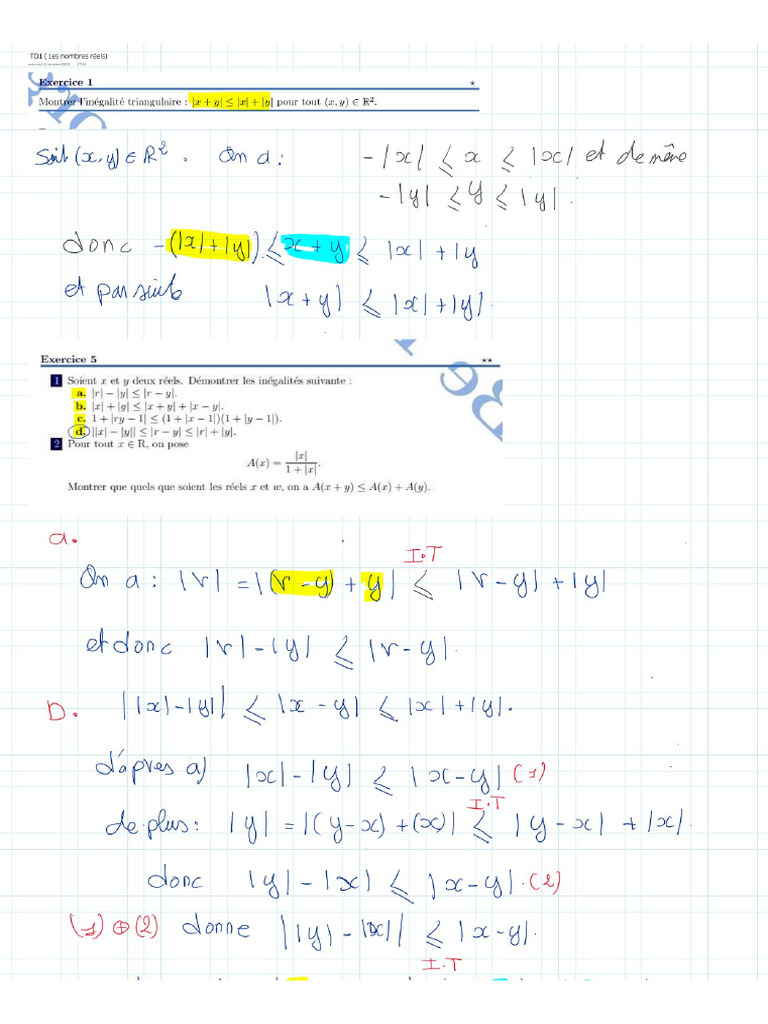 TD1 ( Les nombres réels)
Exercice 1 ⋆
Montrer l'inégalité triangulaire : |x + y| ≤ |x| + |y| pour tout (x, y) ∈ ℝ².
Soit (x, y) ∈ R². On a : -|x| ≤ x ≤ |x| et de même
-|y| ≤ y ≤ |y|.
donc -(|x| + |y|) ≤ x + y ≤ |x| + |y
et par suite |x + y| ≤ |x| + |y|.
Exercice 5 ⋆⋆
1 Soient x et y deux réels. Démontrer les inégalités suivante :
a. |r| − |y| ≤ |r − y|.
b. |x| + |g| ≤ |x + y| + |x − y|.
c. 1 + |ry − 1| ≤ (1 + |x − 1|)(1 + |y − 1|).
d. ||x| − |y|| ≤ |r − y| ≤ |r| + |y|.
2 Pour tout x ∈ R, on pose
A(x) = |x| / (1 + |x|).
Montrer que quels que soient les réels x et w, on a A(x + y) ≤ A(x) + A(y).
a.
I.T
On a : |r| = |(r - y) + y| ≤ |r - y| + |y|
et donc |r| - |y| ≤ |r - y|.
D. ||x| - |y|| ≤ |x - y| ≤ |x| + |y|.
d'après a) |x| - |y| ≤ |x - y| (1)
I.T
de plus : |y| = |(y - x) + (x)| ≤ |y - x| + |x|.
donc |y| - |x| ≤ |x - y|. (2)
(1) ⊕ (2) donne ||y| - |x|| ≤ |x - y|.
I.T